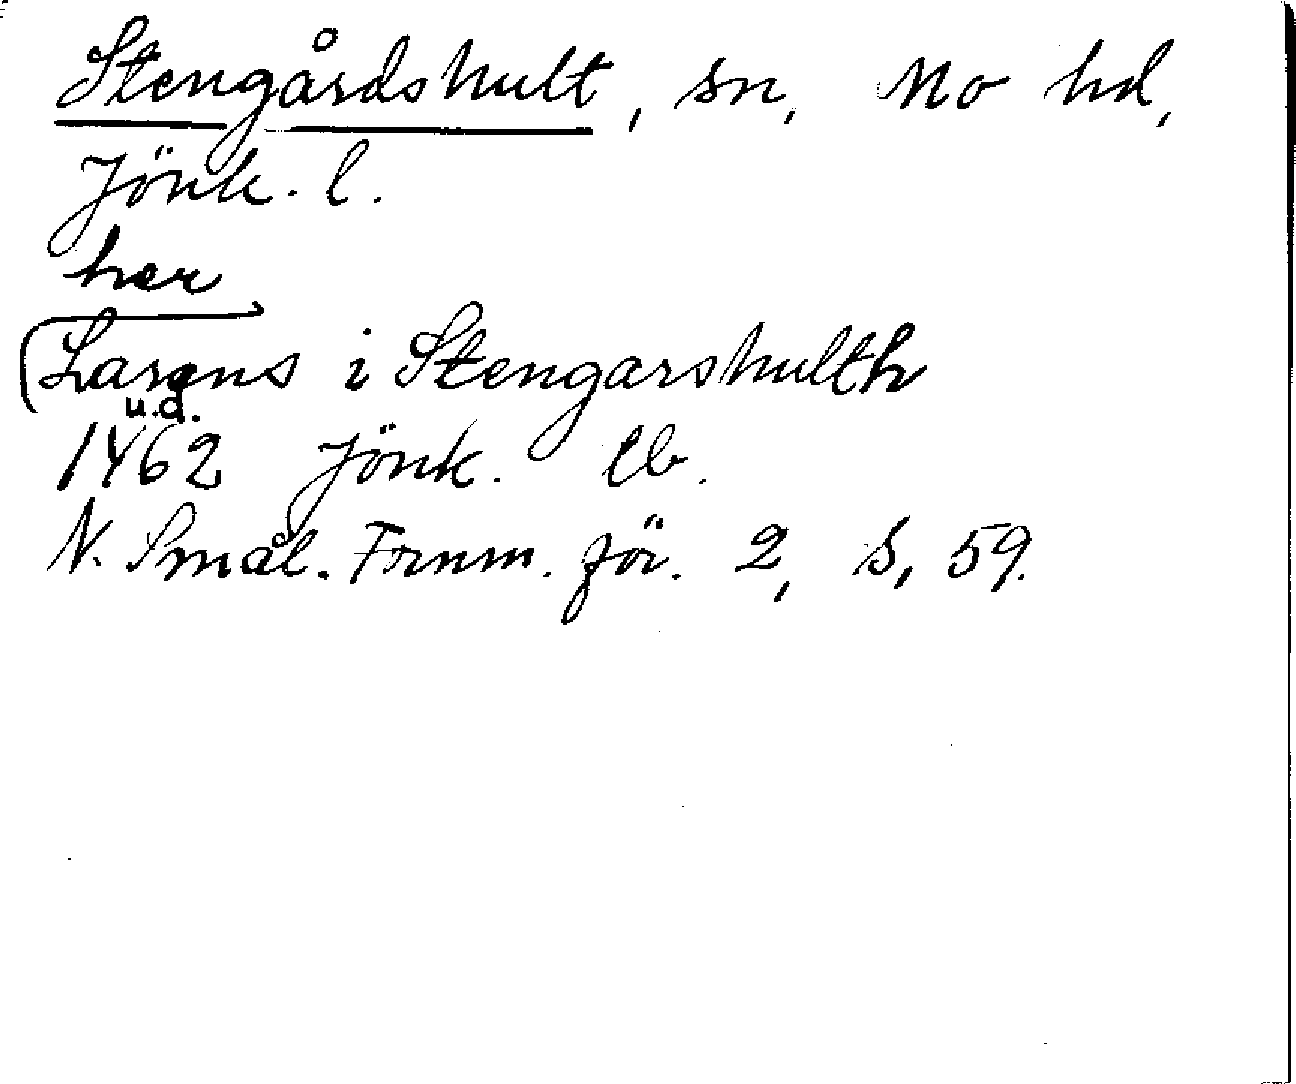 Stengårdshult, sn, Mo hd,
Jönk. l.
her
Larens i Stengarshulth
u.d.
1462 Jönk. tb.
N. Smål. Fornm. för. 2, s, 59.